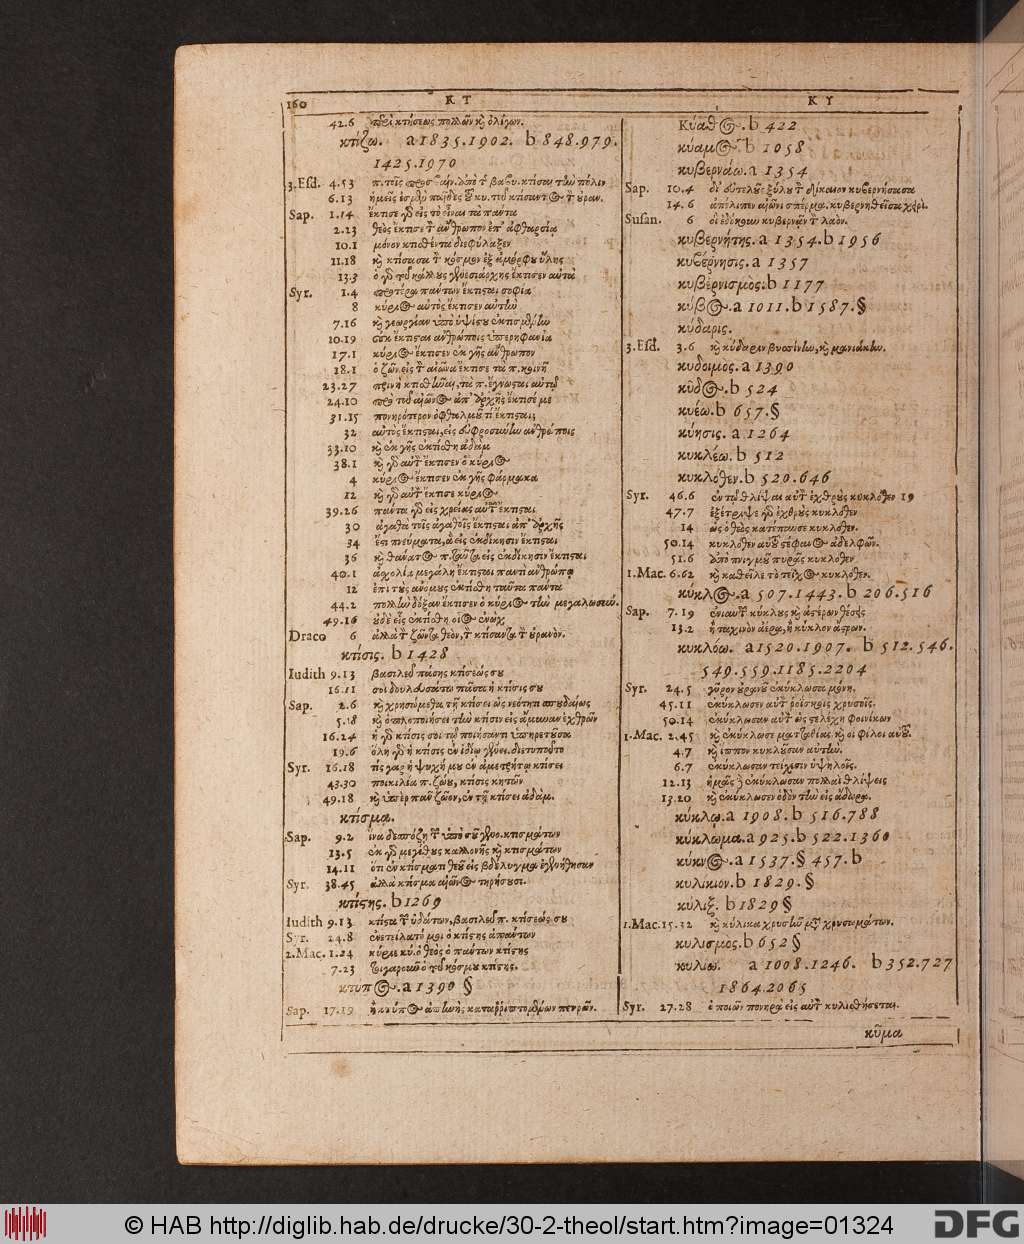 160
Κ Τ
Κ Υ
42.6 κτήσεως πολλῶν καὶ ὀλίγων.
κτίζω. a 1835.1902. b 848.979.
1425.1970
3.Esd. 4.53 κτίσαι τὴν πόλιν
6.13
Sap. 1.14 ἔκτισε γὰρ εἰς τὸ εἶναι τὰ πάντα
2.23 θεὸς ἔκτισε τὸν ἄνθρωπον ἐπ' ἀφθαρσίᾳ
10.1 μόνον κτισθέντα διεφύλαξεν
11.18 καὶ κτίσασα τὸν κόσμον ἐξ ἀμόρφου ὕλης
13.3 ὁ γὰρ τοῦ κάλλους γενεσιάρχης ἔκτισεν αὐτά
Syr. 1.4 προτέρα πάντων ἔκτισται σοφία
8 κύριος αὐτὸς ἔκτισεν αὐτὴν
7.16 καὶ γεωργίαν ὑπὸ ὑψίστου ἐκτισμένην
10.19 οὐκ ἔκτισται ἀνθρώποις ὑπερηφανία
17.1 κύριος ἔκτισεν ἐκ γῆς ἄνθρωπον
18.1 ὁ ζῶν εἰς τὸν αἰῶνα ἔκτισε τὰ π. κοινῇ
23.27 πρινὴ κτισθῆναι, τὰ π. ἔγνωσται αὐτῷ
24.10 πρὸ τοῦ αἰῶνος ἀπ' ἀρχῆς ἔκτισέ με
31.15 πονηρότερον ὀφθαλμοῦ τί ἔκτισται;
32 αὐτὸς ἔκτισται, εἰς εὐφροσύνην ἀνθρώποις
33.10 καὶ ἐκ γῆς ἐκτίσθη ἀδάμ
38.1 καὶ γὰρ αὐτὸν ἔκτισεν ὁ κύριος
4 κύριος ἔκτισεν ἐκ γῆς φάρμακα
12 καὶ γὰρ αὐτὸν ἔκτισε κύριος
39.26 πάντα γὰρ εἰς χρείας αὐτῶν ἔκτισται
30 ἀγαθὰ τοῖς ἀγαθοῖς ἔκτισται ἀπ' ἀρχῆς
34 ἔστι πνεύματα, ἃ εἰς ἐκδίκησιν ἔκτισται
36 καὶ θάνατος π. ταῦτα εἰς ἐκδίκησιν ἔκτισται
40.1 ἀσχολία μεγάλη ἔκτισται παντὶ ἀνθρώπῳ
12 ἐπὶ τοὺς ἀνόμους ἐκτίσθη ταῦτα πάντα
44.2 πολλὴν δόξαν ἔκτισεν ὁ κύριος τὴν μεγαλωσύν.
49.16 οὐδὲ εἷς ἐκτίσθη οἷος ἐνὼχ
Draco 6 ἀλλὰ τὸν ζῶντα θεὸν, τὸν κτίσαντα τὸν οὐρανόν.
κτίσις. b 1428
Iudith 9.13 βασιλεῦ πάσης κτίσεώς σου
16.11 σοὶ δουλευσάτω πᾶσα ἡ κτίσις σου
Sap. 2.6 καὶ χρησώμεθα τῇ κτίσει ὡς νεότητι σπουδαίως
5.18 καὶ ὁπλοποιήσει τὴν κτίσιν εἰς ἄμυναν ἐχθρῶν
16.24 ἡ γὰρ κτίσις σοι τῷ ποιήσαντι ὑπηρετοῦσα
19.6 ὅλη γὰρ ἡ κτίσις ἐν ἰδίῳ γένει διετυποῦτο
Syr. 16.18 τίς γὰρ ἡ ψυχή μου ἐν ἀμετρήτῳ κτίσει
43.30 ποικιλία π. ζώου, κτίσις κητῶν
49.18 καὶ ὑπὲρ πᾶν ζῶον, ἐν τῇ κτίσει ἀδὰμ.
κτίσμα.
Sap. 9.2 ἵνα δεσπόζῃ τῶν ὑπὸ σοῦ γενο. κτισμάτων
13.5 ἐκ γὰρ μεγέθους καλλονῆς καὶ κτισμάτων
14.11 ὅτι ἐν κτίσματι θεοῦ εἰς βδέλυγμα ἐγενήθησαν
Syr. 38.45 ἀλλὰ κτίσμα αἰῶνος τηρήσουσι.
κτίστης. b 1269
Iudith 9.13 κτίστα τῶν ὑδάτων, βασιλεῦ π. κτίσεώς σου
Syr. 24.8 ἐνετείλατό μοι ὁ κτίστης ἁπάντων
2.Mac. 1.24 κύριε κύ. ὁ θεὸς ὁ πάντων κτίστης
7.23 τοιγαροῦν ὁ τοῦ κόσμου κτίστης.
κτύπος. a 1390 §
Sap. 17.19 ἢ κτύπος ἀπηνὴς καταῤῥιπτομένων πετρῶν.
Κύαθος. b 422
κύαμος. b 1058
κυβερνάω. a 1354
Sap. 10.4 δι' εὐτελοῦς ξύλου τὸν δίκαιον κυβερνήσασα
14.6 ἀπέλιπεν αἰῶνι σπέρμα. κυβερνηθεῖσα χειρί.
Susan. 6 οἳ ἐδόκουν κυβερνᾷν τὸν λαόν.
κυβερνήτης. a 1354. b 1956
κυβέρνησις. a 1357
κυβερνισμὸς. b 1177
κύβος. a 1011. b 1587. §
κύδαρις.
3.Esd. 3.6 καὶ κύδαριν βυσσίνην, καὶ μανιάκην.
κυδοιμος. a 1390
κύδος. b 524
κυέω. b 657. §
κύησις. a 1264
κυκλέω. b 512
κυκλόθεν. b 520.646
Syr. 46.6 ἐν τῷ θλίψαι αὐτὸν ἐχθροὺς κυκλόθεν 19
47.7 ἐξέτριψε γὰρ ἐχθροὺς κυκλόθεν
14 ὡς ὁ θεὸς κατέπαυσε κυκλόθεν.
50.14 κυκλόθεν αὐτοῦ στέφανος ἀδελφῶν.
51.6 ἀπὸ πνιγμοῦ πυρᾶς κυκλόθεν
1.Mac. 6.62 καὶ καθεῖλε τὸ τεῖχος κυκλόθεν.
κύκλος. a 507.1443. b 206.516
Sap. 7.19 ἐνιαυτῶν κύκλους καὶ ἀστέρων θέσεις
13.2 ἢ ταχινὸν ἀέρα, ἢ κύκλον ἄστρων.
κυκλόω. a 1520.1907. b 512.546.
549.559.1185.2204
Syr. 24.5 γῦρον οὐρανοῦ ἐκύκλωσα μόνη.
45.11 ἐκύκλωσεν αὐτὸν ῥοΐσκοις χρυσοῖς.
50.14 ἐκύκλωσαν αὐτὸν ὡς στελέχη φοινίκων
1.Mac. 2.45 καὶ ἐκύκλωσε ματταθίας καὶ οἱ φίλοι αὐτοῦ.
4.7 καὶ ἵππον κυκλοῦσαν αὐτὴν.
6.7 ἐκύκλωσαν τείχεσιν ὑψηλοῖς.
12.13 ἡμᾶς δὲ ἐκύκλωσαν πολλαὶ θλίψεις
13.20 καὶ ἐκύκλωσεν ὁδὸν τὴν εἰς ἄδωρα.
κύκλῳ. a 1908. b 516.788
κύκλωμα. a 925. b 522.1360
κύκνος. a 1537. § 457. b
κυλίκιον. b 1829. §
κύλιξ. b 1829 §
1.Mac. 15.32 καὶ κύλικα χρυσῶν μετὰ χρυσωμάτων.
κυλισμος. b 652 §
κυλίω. a 1008.1246. b 352.727
1864.2065
Syr. 27.28 ὁ ποιῶν πονηρὰ εἰς αὐτὸν κυλισθήσεται.
κῦμα
© HAB http://diglib.hab.de/drucke/30-2-theol/start.htm?image=01324
DFG